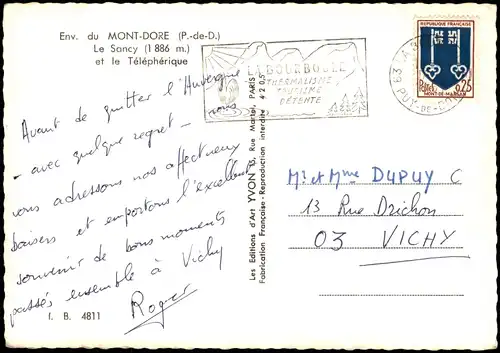 Env. du MONT-DORE (P.-de-D.)
Le Sancy (1 886 m.)
et le Téléphérique
Avant de quitter l'Auvergne
- avec quelque regret - nous
vous adressons nos affectueux
baisers et emportons l'excellent
souvenir de bons moments
passés ensemble à Vichy
Roger
f. B. 4811
Les Editions d'Art YVON 15, Rue Martel, PARIS
Fabrication Française - Reproduction interdite
LA BOURBOULE
THERMALISME
TOURISME
DÉTENTE
63 LA
PUY-DE-DÔME
REPUBLIQUE FRANÇAISE
Postes 0,25
MONT-DE-MARSAN
Mr et Mme DUPUY C
13 Rue Drichon
03 VICHY